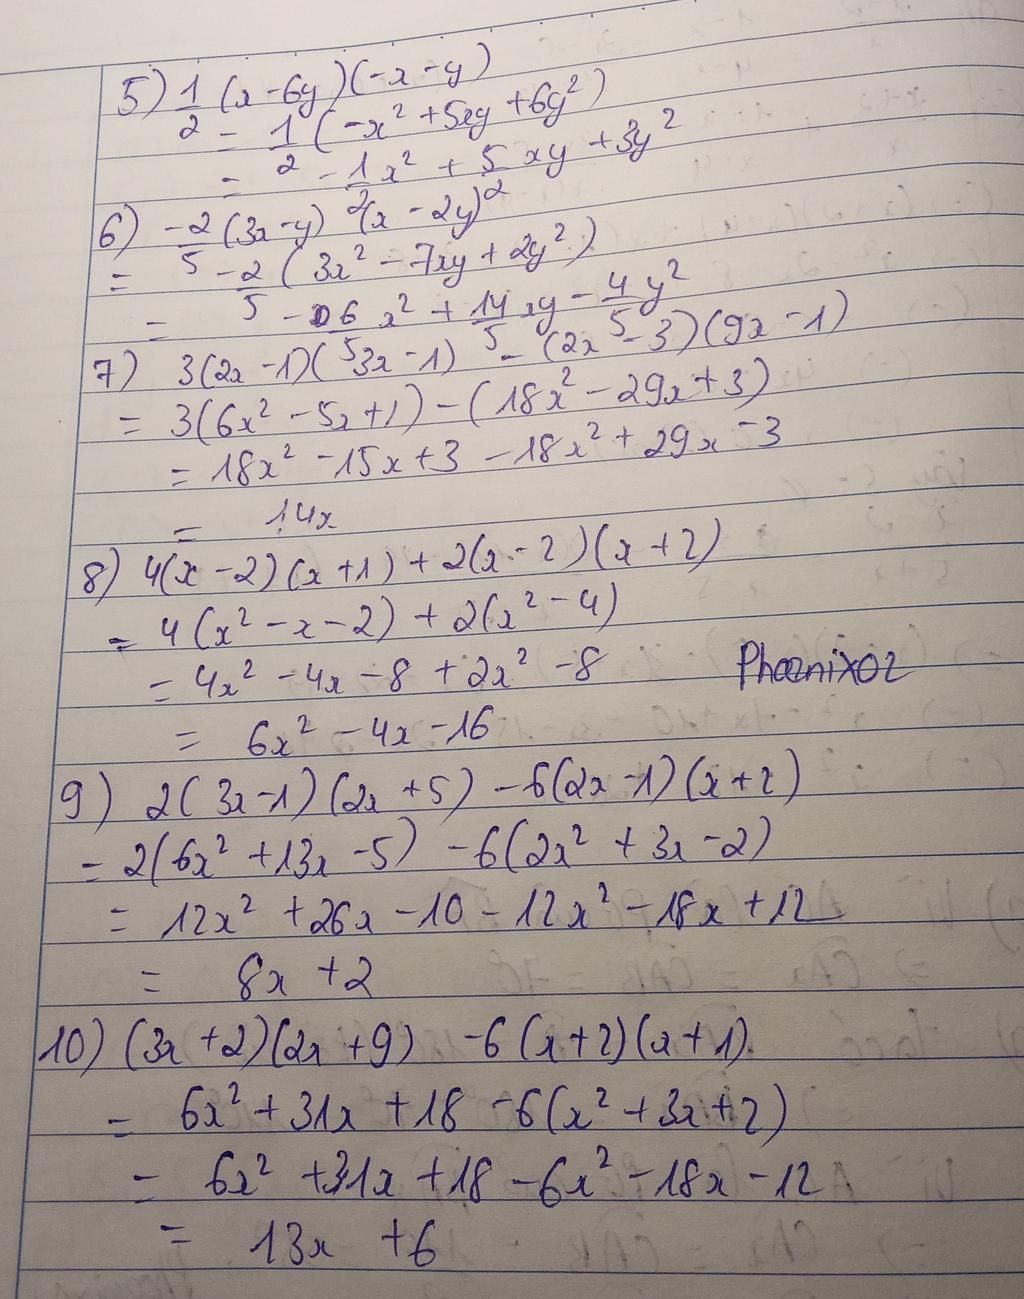 5) 1/2 (x - 6y)(-x - y)
= 1/2 (-x² + 5xy + 6y²)
= -1/2 x² + 5/2 xy + 3y²
6) -2/5 (3x - y) (x - 2y)
= -2/5 (3x² - 7xy + 2y²)
= -6/5 x² + 14/5 xy - 4/5 y²
7) 3(2x - 1)(3x - 1) - (2x - 3)(9x - 1)
= 3(6x² - 5x + 1) - (18x² - 29x + 3)
= 18x² - 15x + 3 - 18x² + 29x - 3
= 14x
8) 4(x - 2)(x + 1) + 2(x - 2)(x + 2)
= 4(x² - x - 2) + 2(x² - 4)
= 4x² - 4x - 8 + 2x² - 8
Phoenixoz
= 6x² - 4x - 16
9) 2(3x - 1)(2x + 5) - 6(2x - 1)(x + 2)
= 2(6x² + 13x - 5) - 6(2x² + 3x - 2)
= 12x² + 26x - 10 - 12x² - 18x + 12
= 8x + 2
10) (3x + 2)(2x + 9) - 6(x + 2)(x + 1).
= 6x² + 31x + 18 - 6(x² + 3x + 2)
= 6x² + 31x + 18 - 6x² - 18x - 12
= 13x + 6